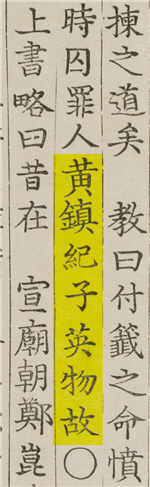 揀之道矣　教曰付籤之命憤
時囚罪人黃鎮紀子英物故〇
上書略曰昔在　宣廟朝鄭崑